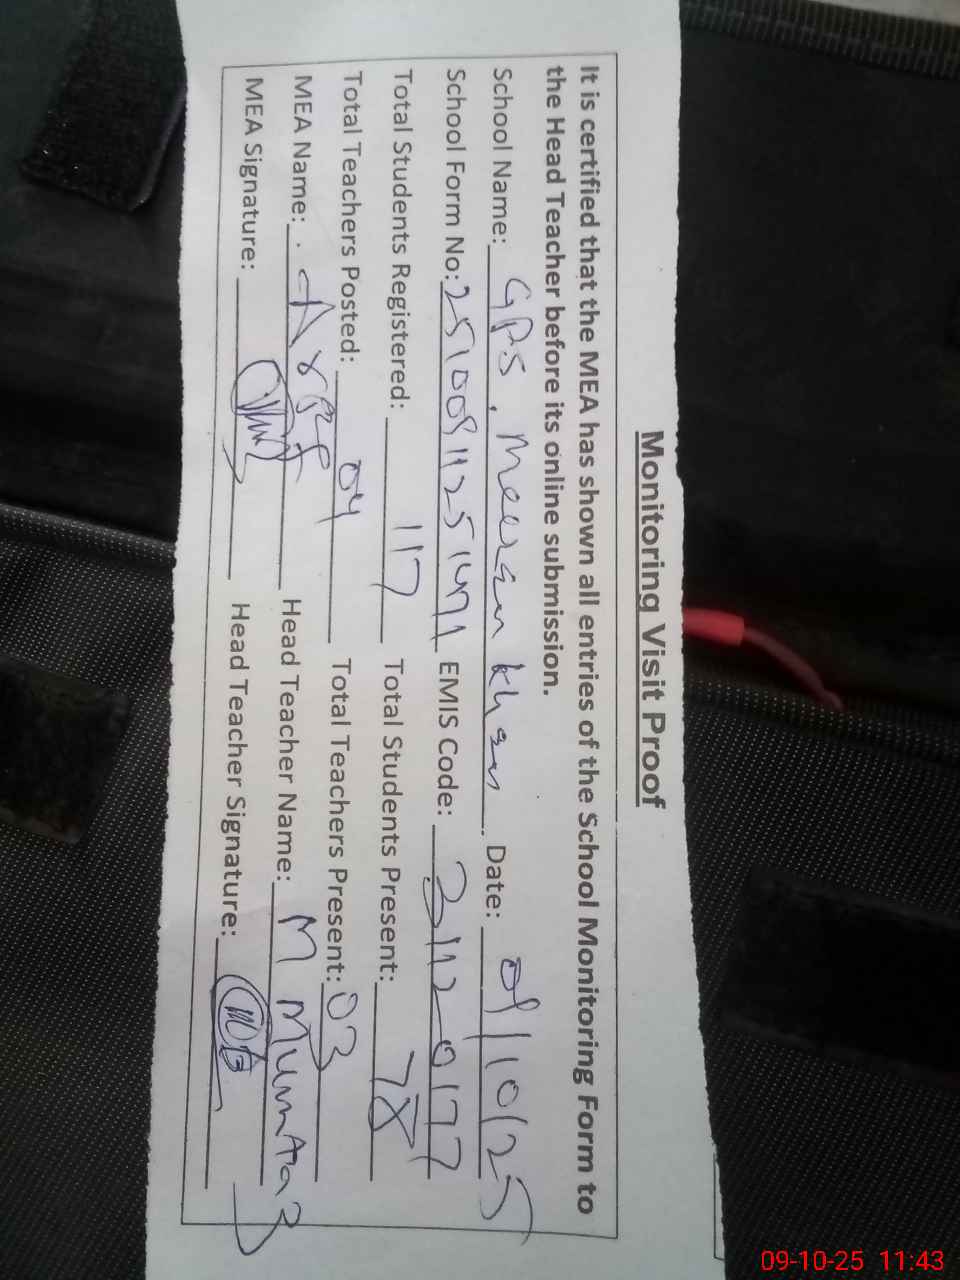 Monitoring Visit Proof
It is certified that the MEA has shown all entries of the School Monitoring Form to
the Head Teacher before its online submission.
School Name: GPS. Meeran khan. Date: 09/10/25
School Form No: EMIS Code: 31120177
Total Students Registered: 117 Total Students Present: 78
Total Teachers Posted: 04 Total Teachers Present: 03
MEA Name: Head Teacher Name: M Mumtaz
MEA Signature: Head Teacher Signature:
09-10-25 11:43